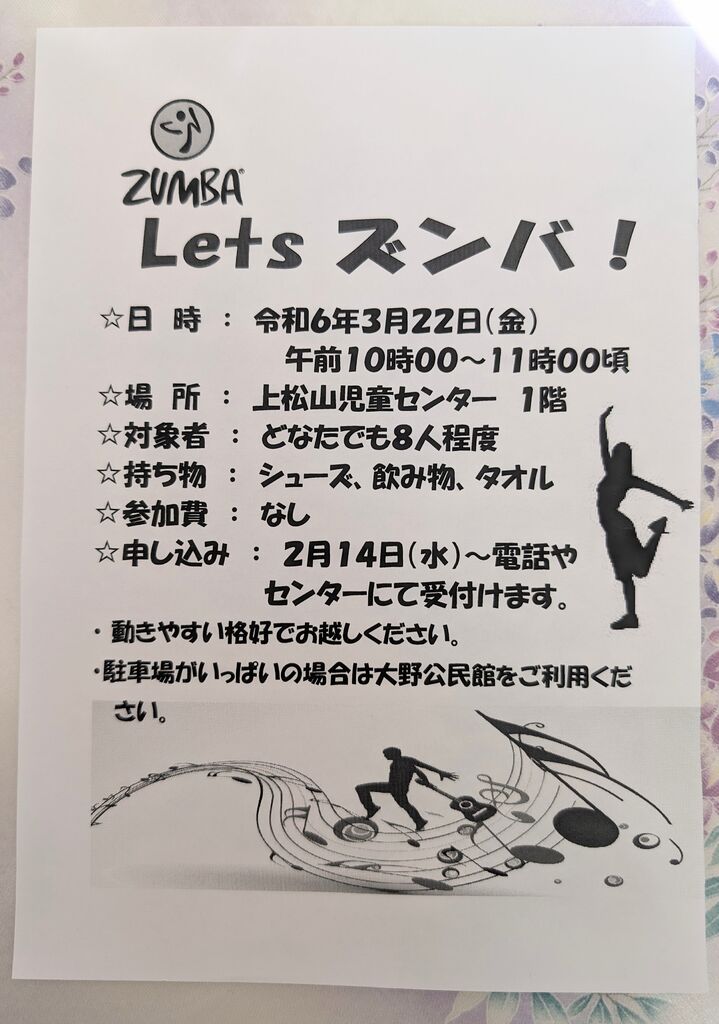 ZUMBA®
Lets ズンバ！
☆日 時 ： 令和6年3月22日(金)
午前10時00～11時00頃
☆場 所 ： 上松山児童センター 1階
☆対象者 ： どなたでも8人程度
☆持ち物 ： シューズ、飲み物、タオル
☆参加費 ： なし
☆申し込み ： 2月14日(水)～電話や
センターにて受付けます。
・動きやすい格好でお越しください。
・駐車場がいっぱいの場合は大野公民館をご利用くだ
さい。